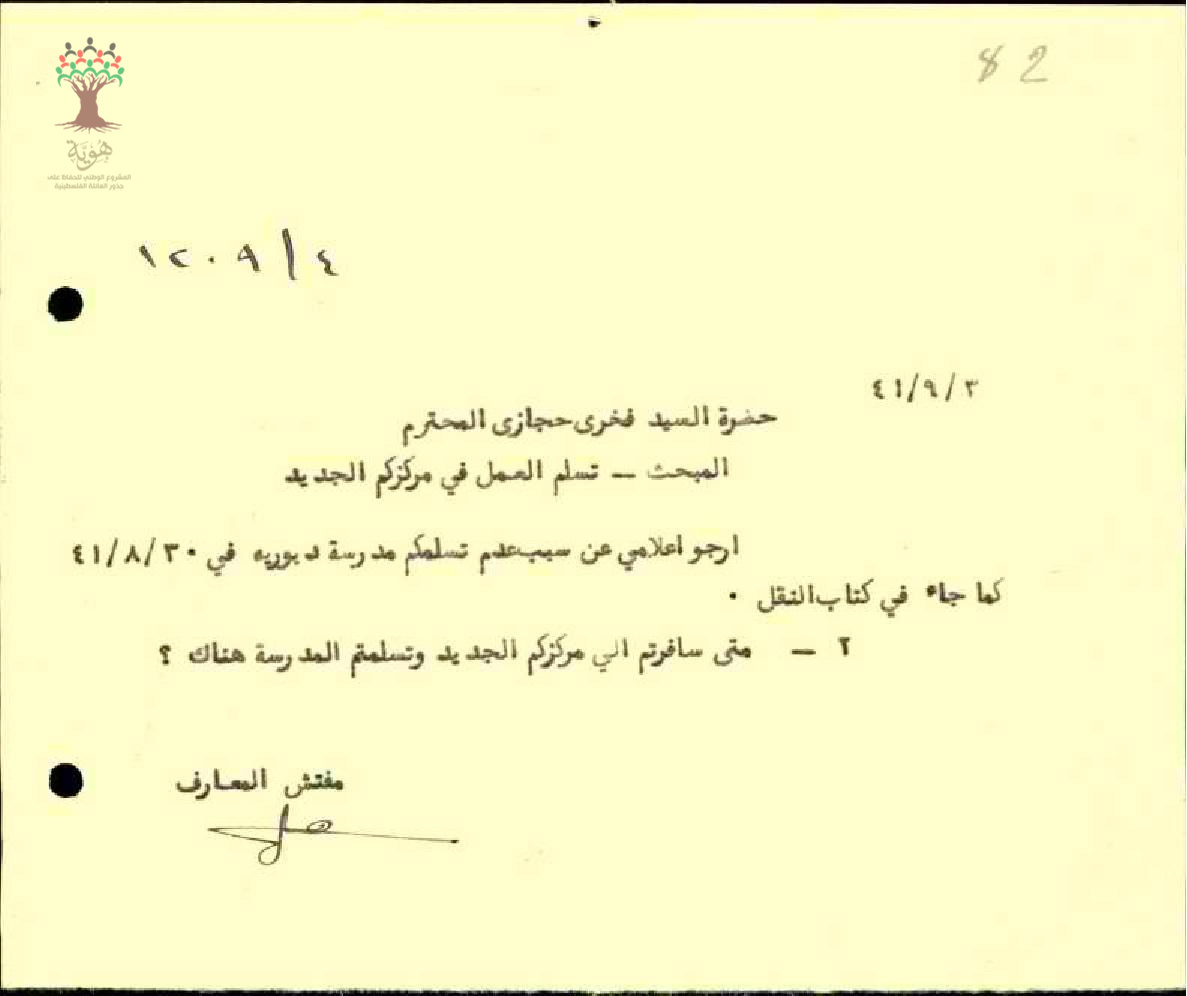 82
هُوِيَّة
المشروع الوطني للحفاظ على
جذور العائلة الفلسطينية
١٢٠٩/٤
٤١/٩/٣
حضرة السيد فخرى حجازى المحترم
المبحث — تسلم العمل في مركزكم الجديد
ارجو اعلامي عن سبب عدم تسلمكم مدرسة دبوريه في ٤١/٨/٣٠
كما جاء في كتاب النقل ٠
٢ — متى سافرتم الي مركزكم الجديد وتسلمتم المدرسة هناك ؟
مفتش المعارف